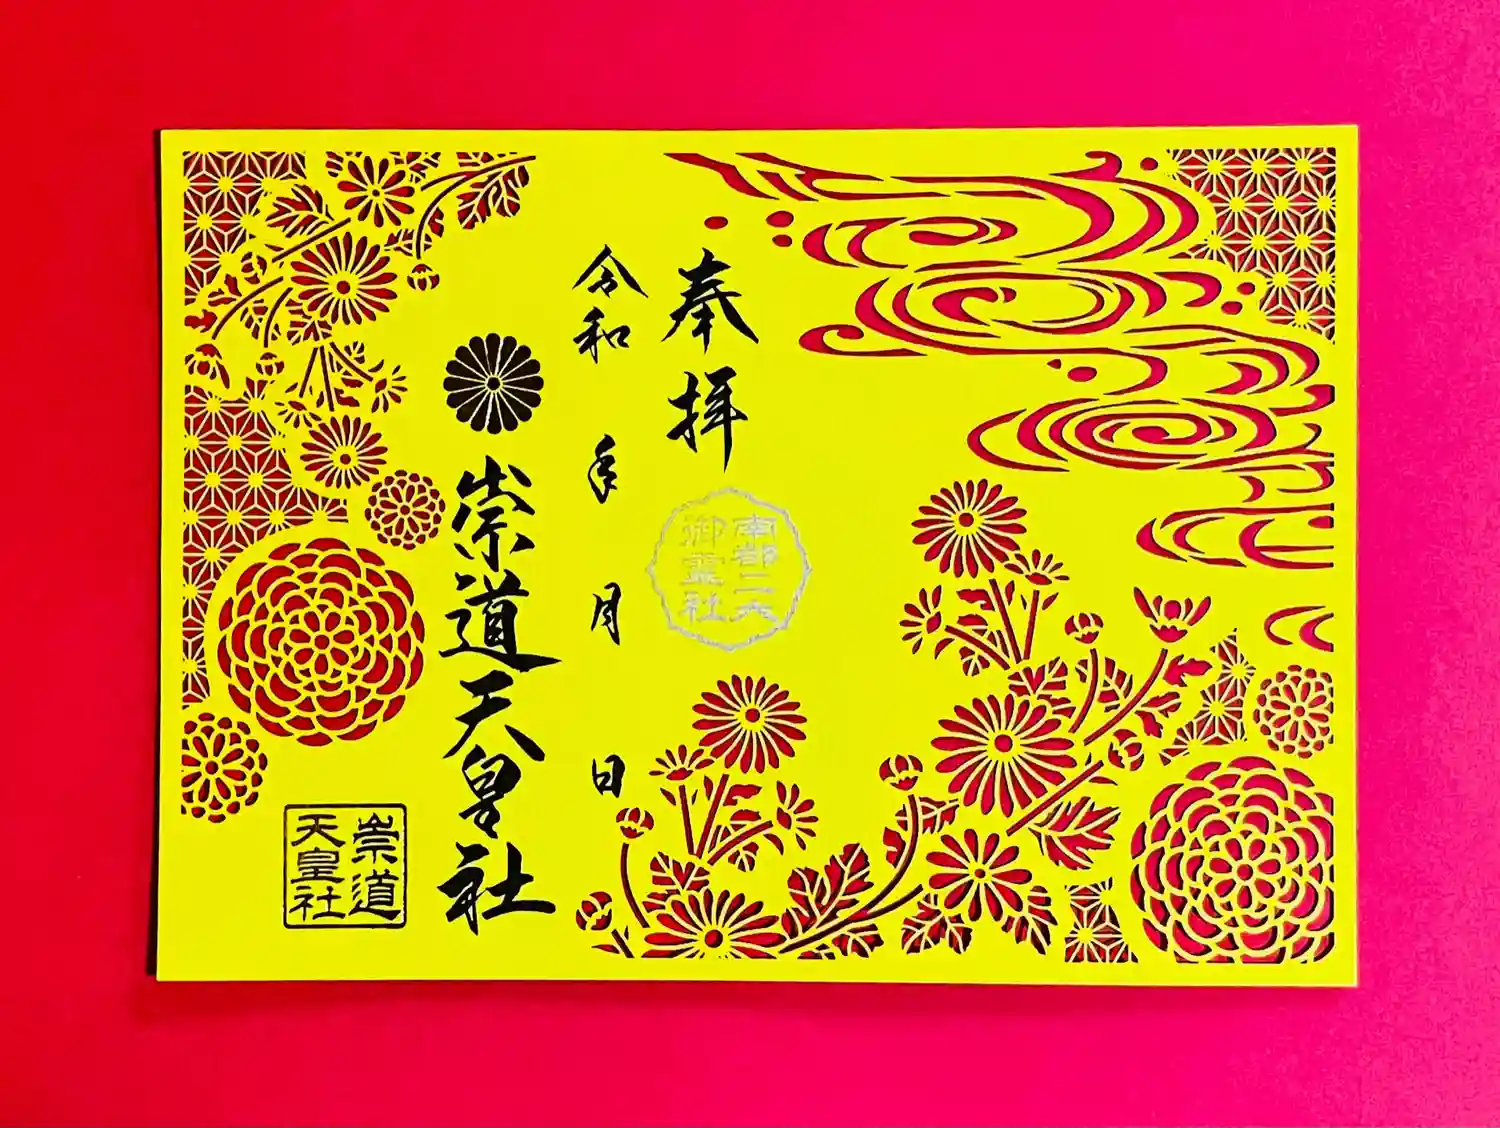 奉拝
南都二大
御霊社
令和 年 月 日
崇道天皇社
崇道
天皇社